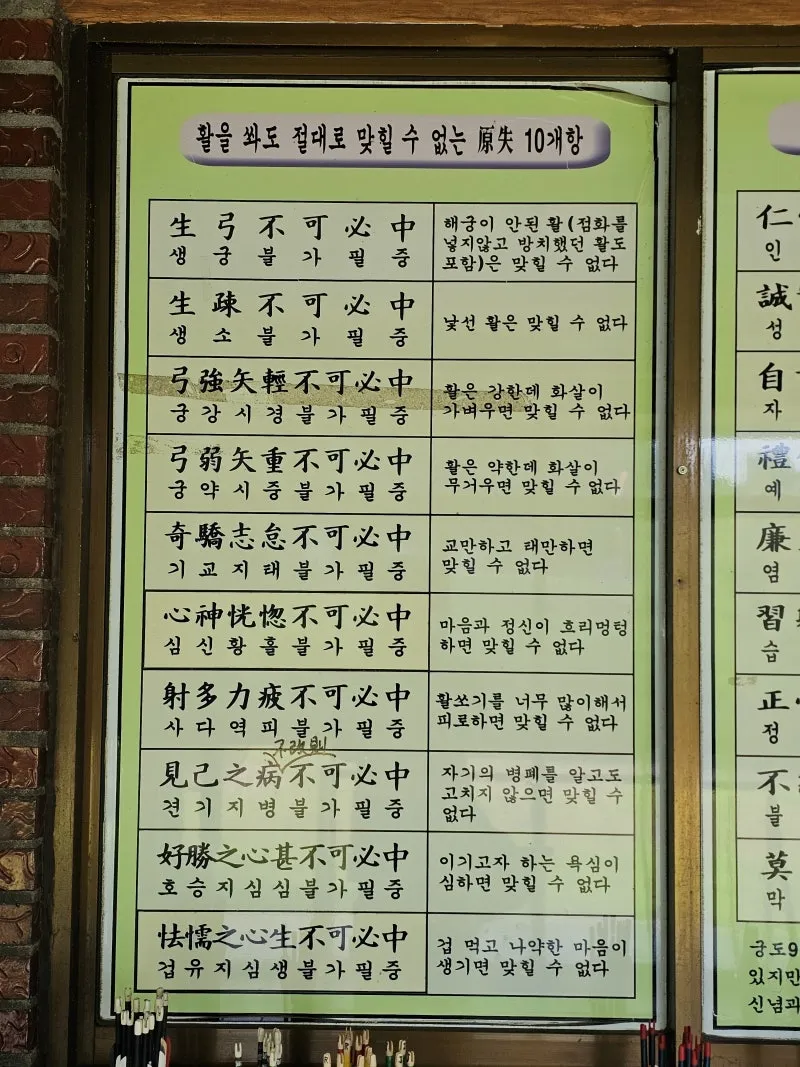 활을 쏴도 절대로 맞힐 수 없는 原失 10개항
生弓不可必中
생궁불가필중
해궁이 안된 활(점화를
넣지않고 방치했던 활도
포함)은 맞힐 수 없다
生疎不可必中
생소불가필중
낯선 활은 맞힐 수 없다
弓強矢輕不可必中
궁강시경불가필중
활은 강한데 화살이
가벼우면 맞힐 수 없다
弓弱矢重不可必中
궁약시중불가필중
활은 약한데 화살이
무거우면 맞힐 수 없다
奇驕志怠不可必中
기교지태불가필중
교만하고 태만하면
맞힐 수 없다
心神恍惚不可必中
심신황홀불가필중
마음과 정신이 흐리멍텅
하면 맞힐 수 없다
射多力疲不可必中
사다역피불가필중
활쏘기를 너무 많이해서
피로하면 맞힐 수 없다
不改則
見己之病不可必中
견기지병불가필중
자기의 병폐를 알고도
고치지 않으면 맞힐 수
없다
好勝之心甚不可必中
호승지심심불가필중
이기고자 하는 욕심이
심하면 맞힐 수 없다
怯懦之心生不可必中
겁유지심생불가필중
겁 먹고 나약한 마음이
생기면 맞힐 수 없다
仁
인
誠
성
自
자
禮
예
廉
염
習
습
正
정
不
불
莫
막
궁도9
있지만
신념과